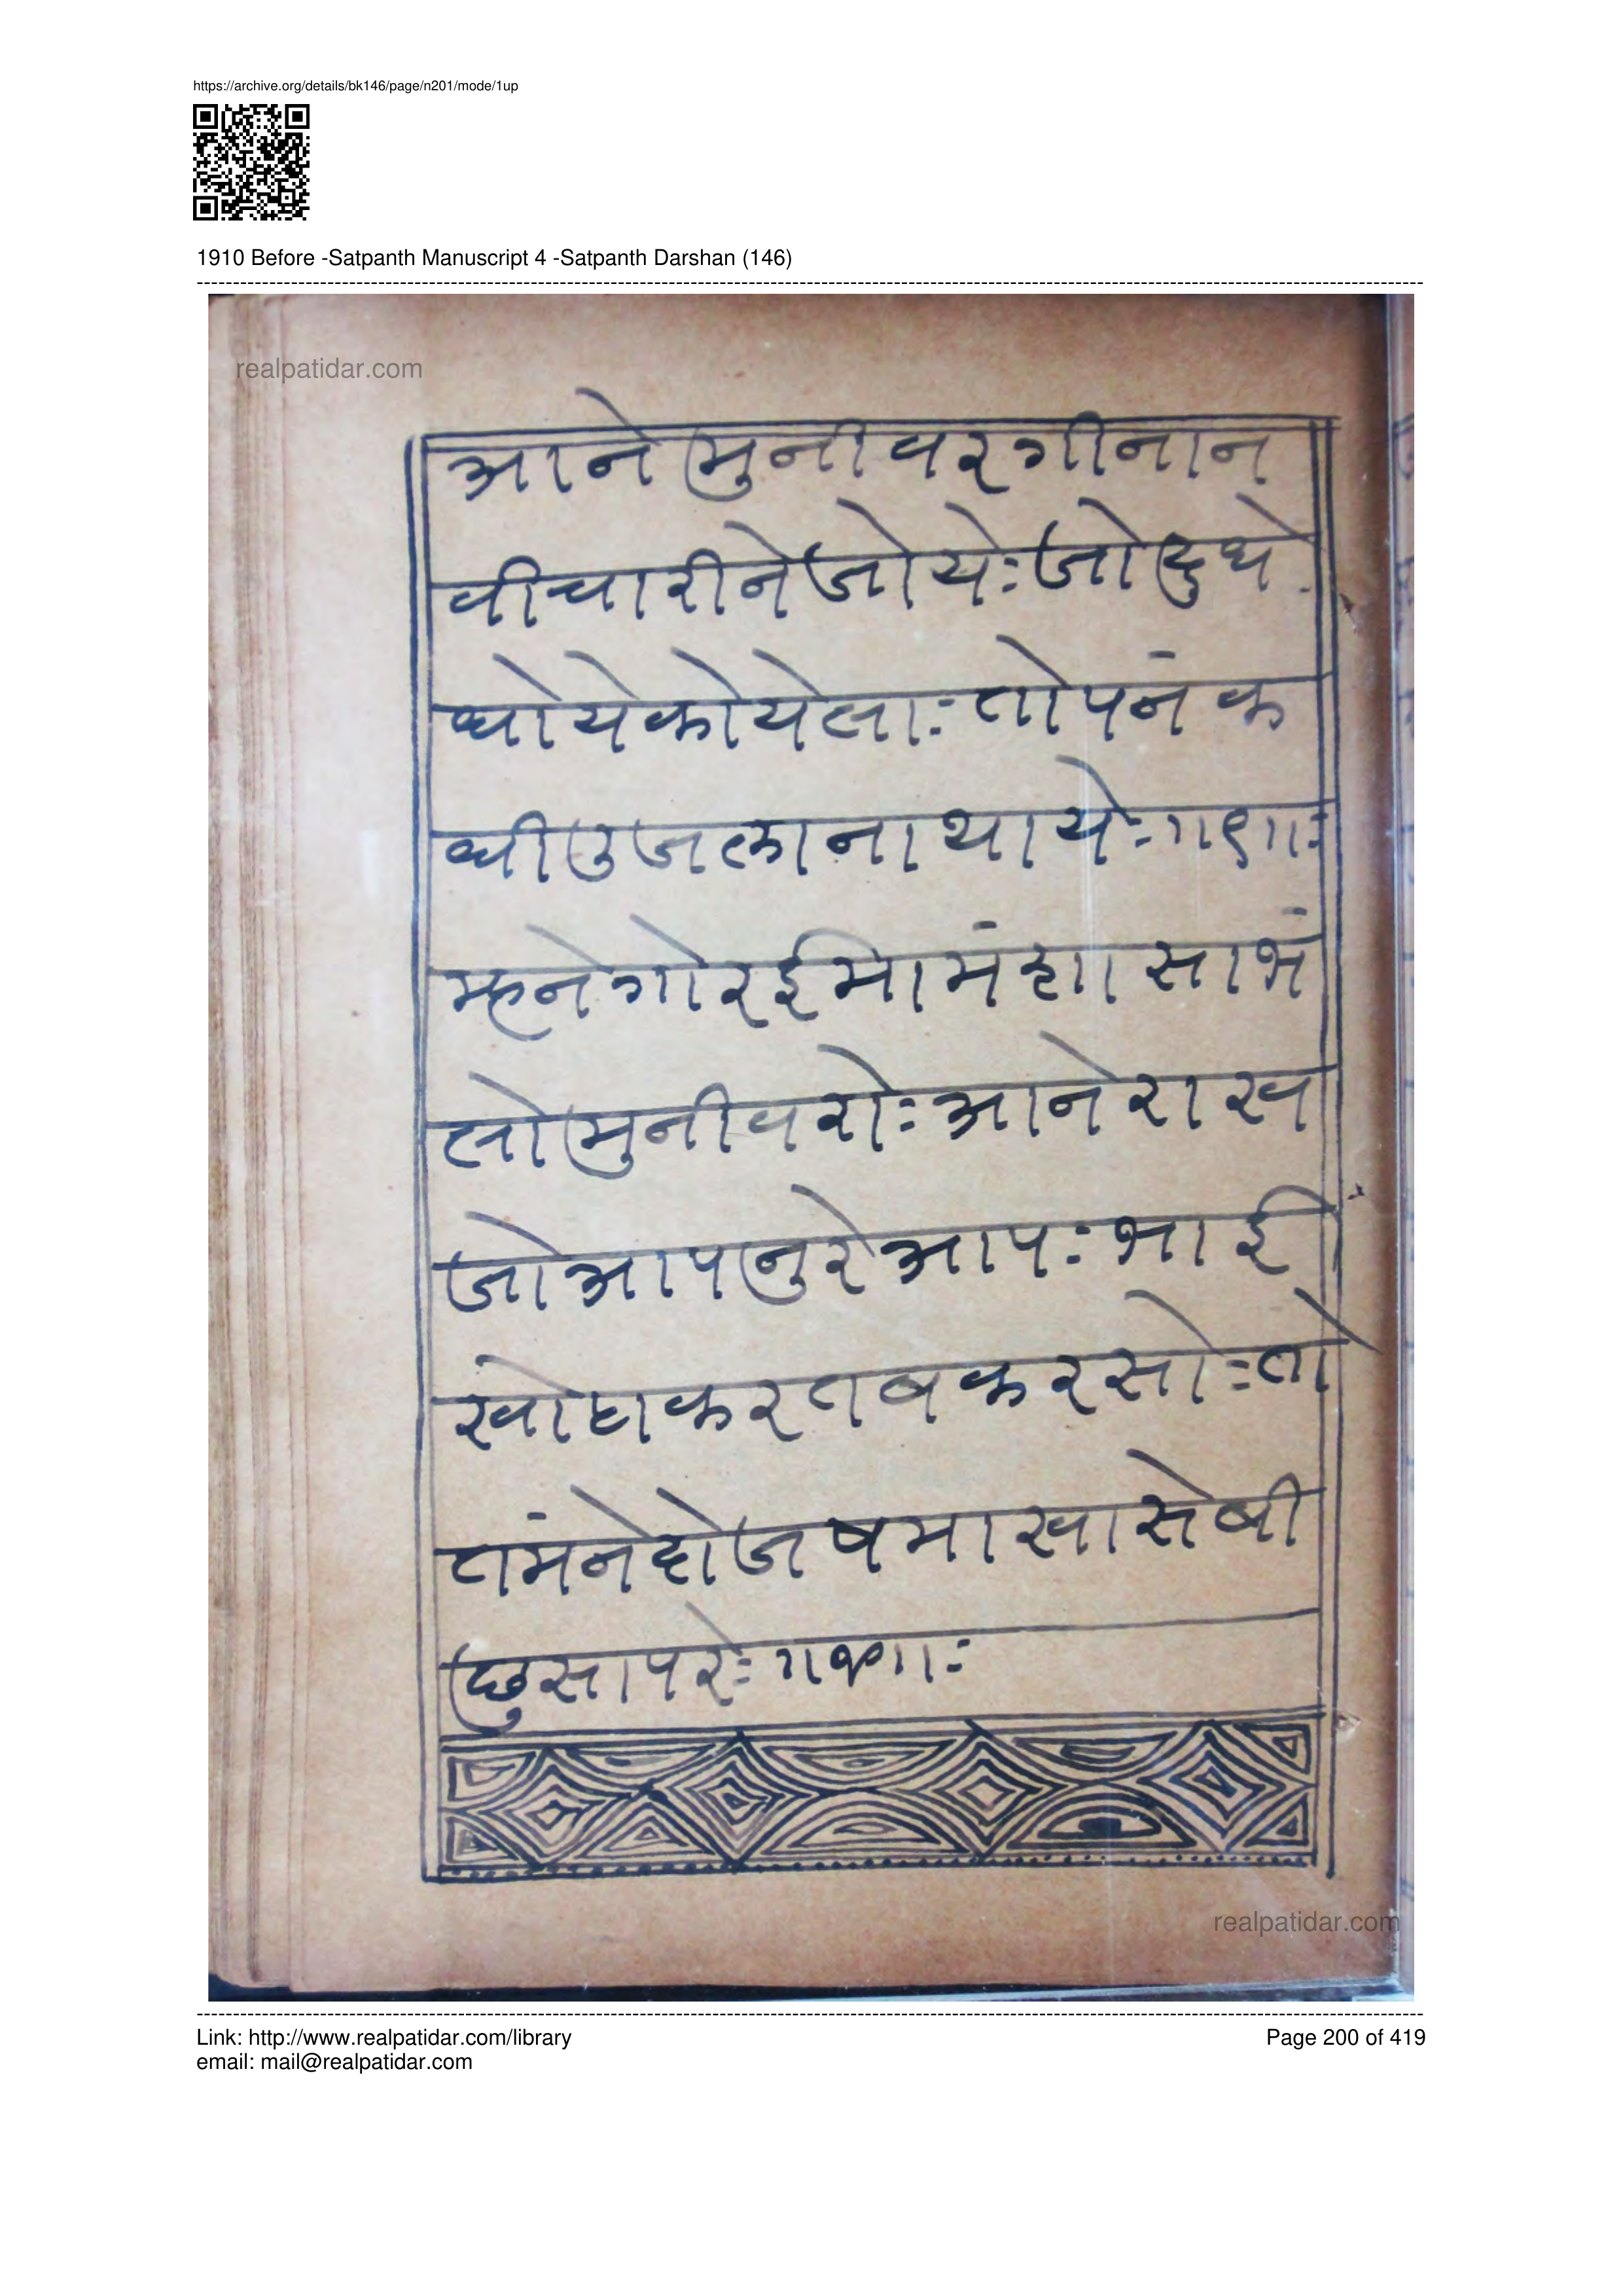 https://archive.org/details/bk146/page/n201/mode/1up
1910 Before -Satpanth Manuscript 4 -Satpanth Darshan (146)
realpatidar.com
आने मुनीवर गीनान
वीचारीने जोये: जो दुधे
धोये कोयेला: तो पनं क
धी उजला ना थाये: ।।१।।:
मंशा सा भं
लो मुनीवरो: आने राख
जो आपनु रे आप: भाई
खोटा करतब करसो: तो
तमंने दोजषमा खासे वी
छु सापरे:
realpatidar.com
Link: http://www.realpatidar.com/library
email: mail@realpatidar.com
Page 200 of 419